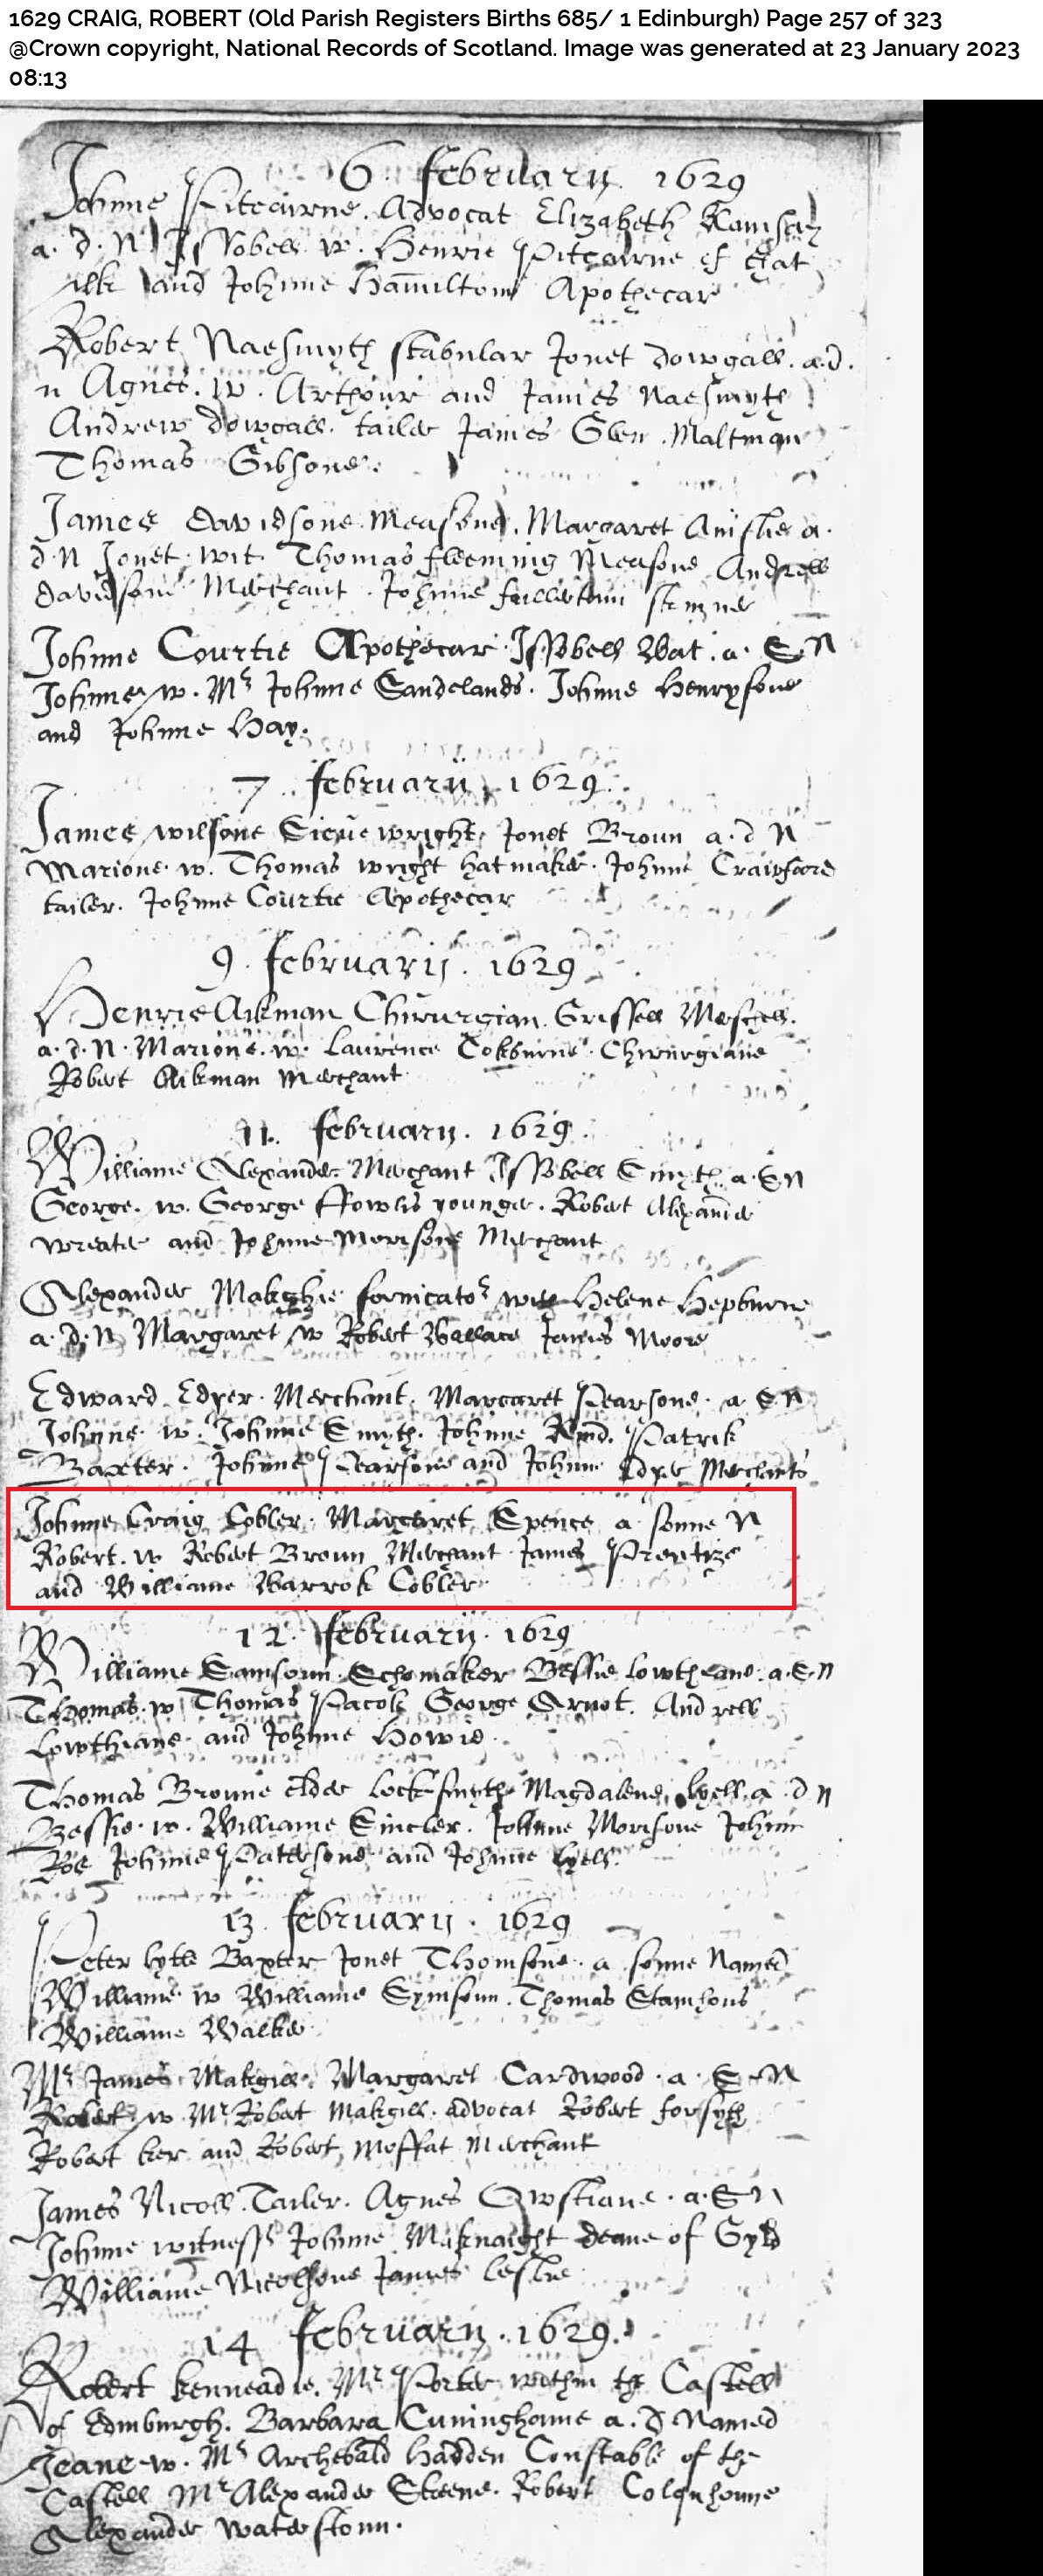 1629 CRAIG, ROBERT (Old Parish Registers Births 685/ 1 Edinburgh) Page 257 of 323
@Crown copyright, National Records of Scotland. Image was generated at 23 January 2023
08:13
6 februarij 1629
Johnne Pitcairne. Advocat Elizabeth Ramsay
a. d. N Issobell w. Henrie Pitcairne of that
ilk and Johnne Hamiltoun Apothecar
Robert Naesmyth stabular Jonet Dowgall. a. d.
n Agnes. w. Arthour and James Naesmyth
Andrew Dowgall. tailer James Glen. Maltman
Thomas Gibsone.
James Davidsone Measone. Margaret a.
d. N Jonet. wit. Thomas fleeming Measone Andrew
Davidsone Merchant. Johnne fullertoun skinner
Johnne Courtie Apothecar. Issobell Wat. a. S. N
Johnne. w. Mr Johnne Sandelands. Johnne Henrysone
and Johnne Hay.
7. februarij. 1629.
James wilsone wright. Jonet Broun a. d N
Marione. w. Thomas wright hatmaker. Johnne Crawfoord
tailer. Johnne Courtie Apothecar
9. februarij. 1629
Henrie Aikman Chirurgian. Grissell
a. d. N. Marione. w. Laurence Cokburne. Chirurgiane
Robert Aikman Merchant
11. februarij. 1629.
Williame Alexander Merchant Issobell Smyth. a. S. N
George. w. George ffowlis younger. Robert Alexander
wreater and Johnne Morisone Merchant
Alexander Makghie fornicator with Helene Hepburne
a. d. N Margaret w Robert Wallace James Moore
Edward Edyer. Merchant. Margaret Pearsone. a S N
Johnne. w. Johnne Smyth. Johnne Patrik
Baxter. Johnne Pearsone and Johnne Edyer Merchants
Johnne Craig Cobler. Margaret Spence a sonne N
Robert. w Robert Broun Merchant James Prentize
and Williame Warrok Cobler
12. februarij. 1629
Williame Samsoun. Schomaker Bessie Lowtheane. a. S. N
Thomas. w Thomas George Arnot. Andrew
Lowthiane and Johnne Howie.
Thomas Brounne elder Locksmyth Magdalene Lyell. a. d N
Bessie. w. Williame Sincler. Johnne Morisone Johnne
Johnne Patersone and Johnne Lyell.
13. februarij. 1629
Peter Lytle Baxter Jonet Thomsone. a sonne Named
Williame. w Williame Symsoun. Thomas
Williame Walker
Mr James Makgill. Margaret Cardwood. a. S. N
Robert. w. Mr Robert Makgill. advocat Robert forsyth
Robert ker and Robert Moffat Merchant
James Nicoll. Tailer. Agnes. a. S N
Johnne witness Johnne Maknaight deane of Gyld
Williame Nicolsone James Leslie
14 februarij. 1629.
Robert kenneadie. Mr Porter within the Castell
of Edinburgh. Barbara Cuninghame a. D Named
Jeane w. Mr Archebald Hadden Constable of the
Castell Mr Alexander Skeene. Robert Colquhoune
Alexander waterstoun.